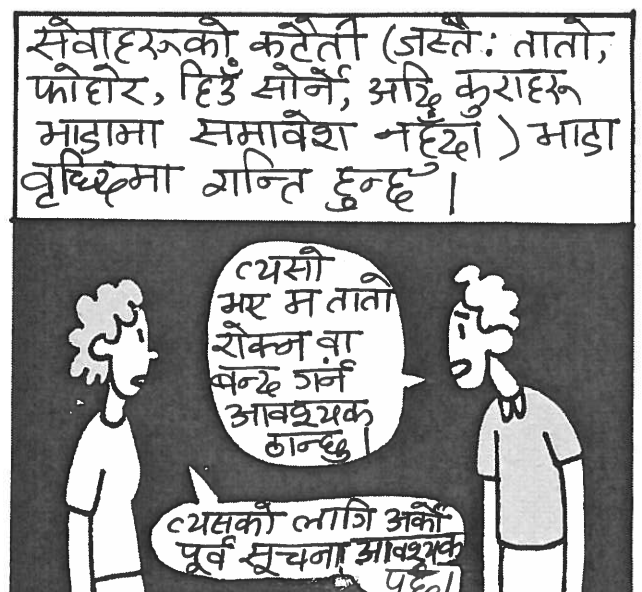 सेवाहरूको कटौती (जस्तै: तातो,
फोहोर, हिउँ सोर्ने, आदि कुराहरू
भाडामा समावेश नहुँदा) भाडा
वृध्दिमा गन्ति हुन्छ ।
त्यसो
भए म तातो
रोक्न वा
बन्द गर्न
आवश्यक
ठान्छु।
त्यसको लागि अर्को
पूर्व सूचना आवश्यक
पर्छ।